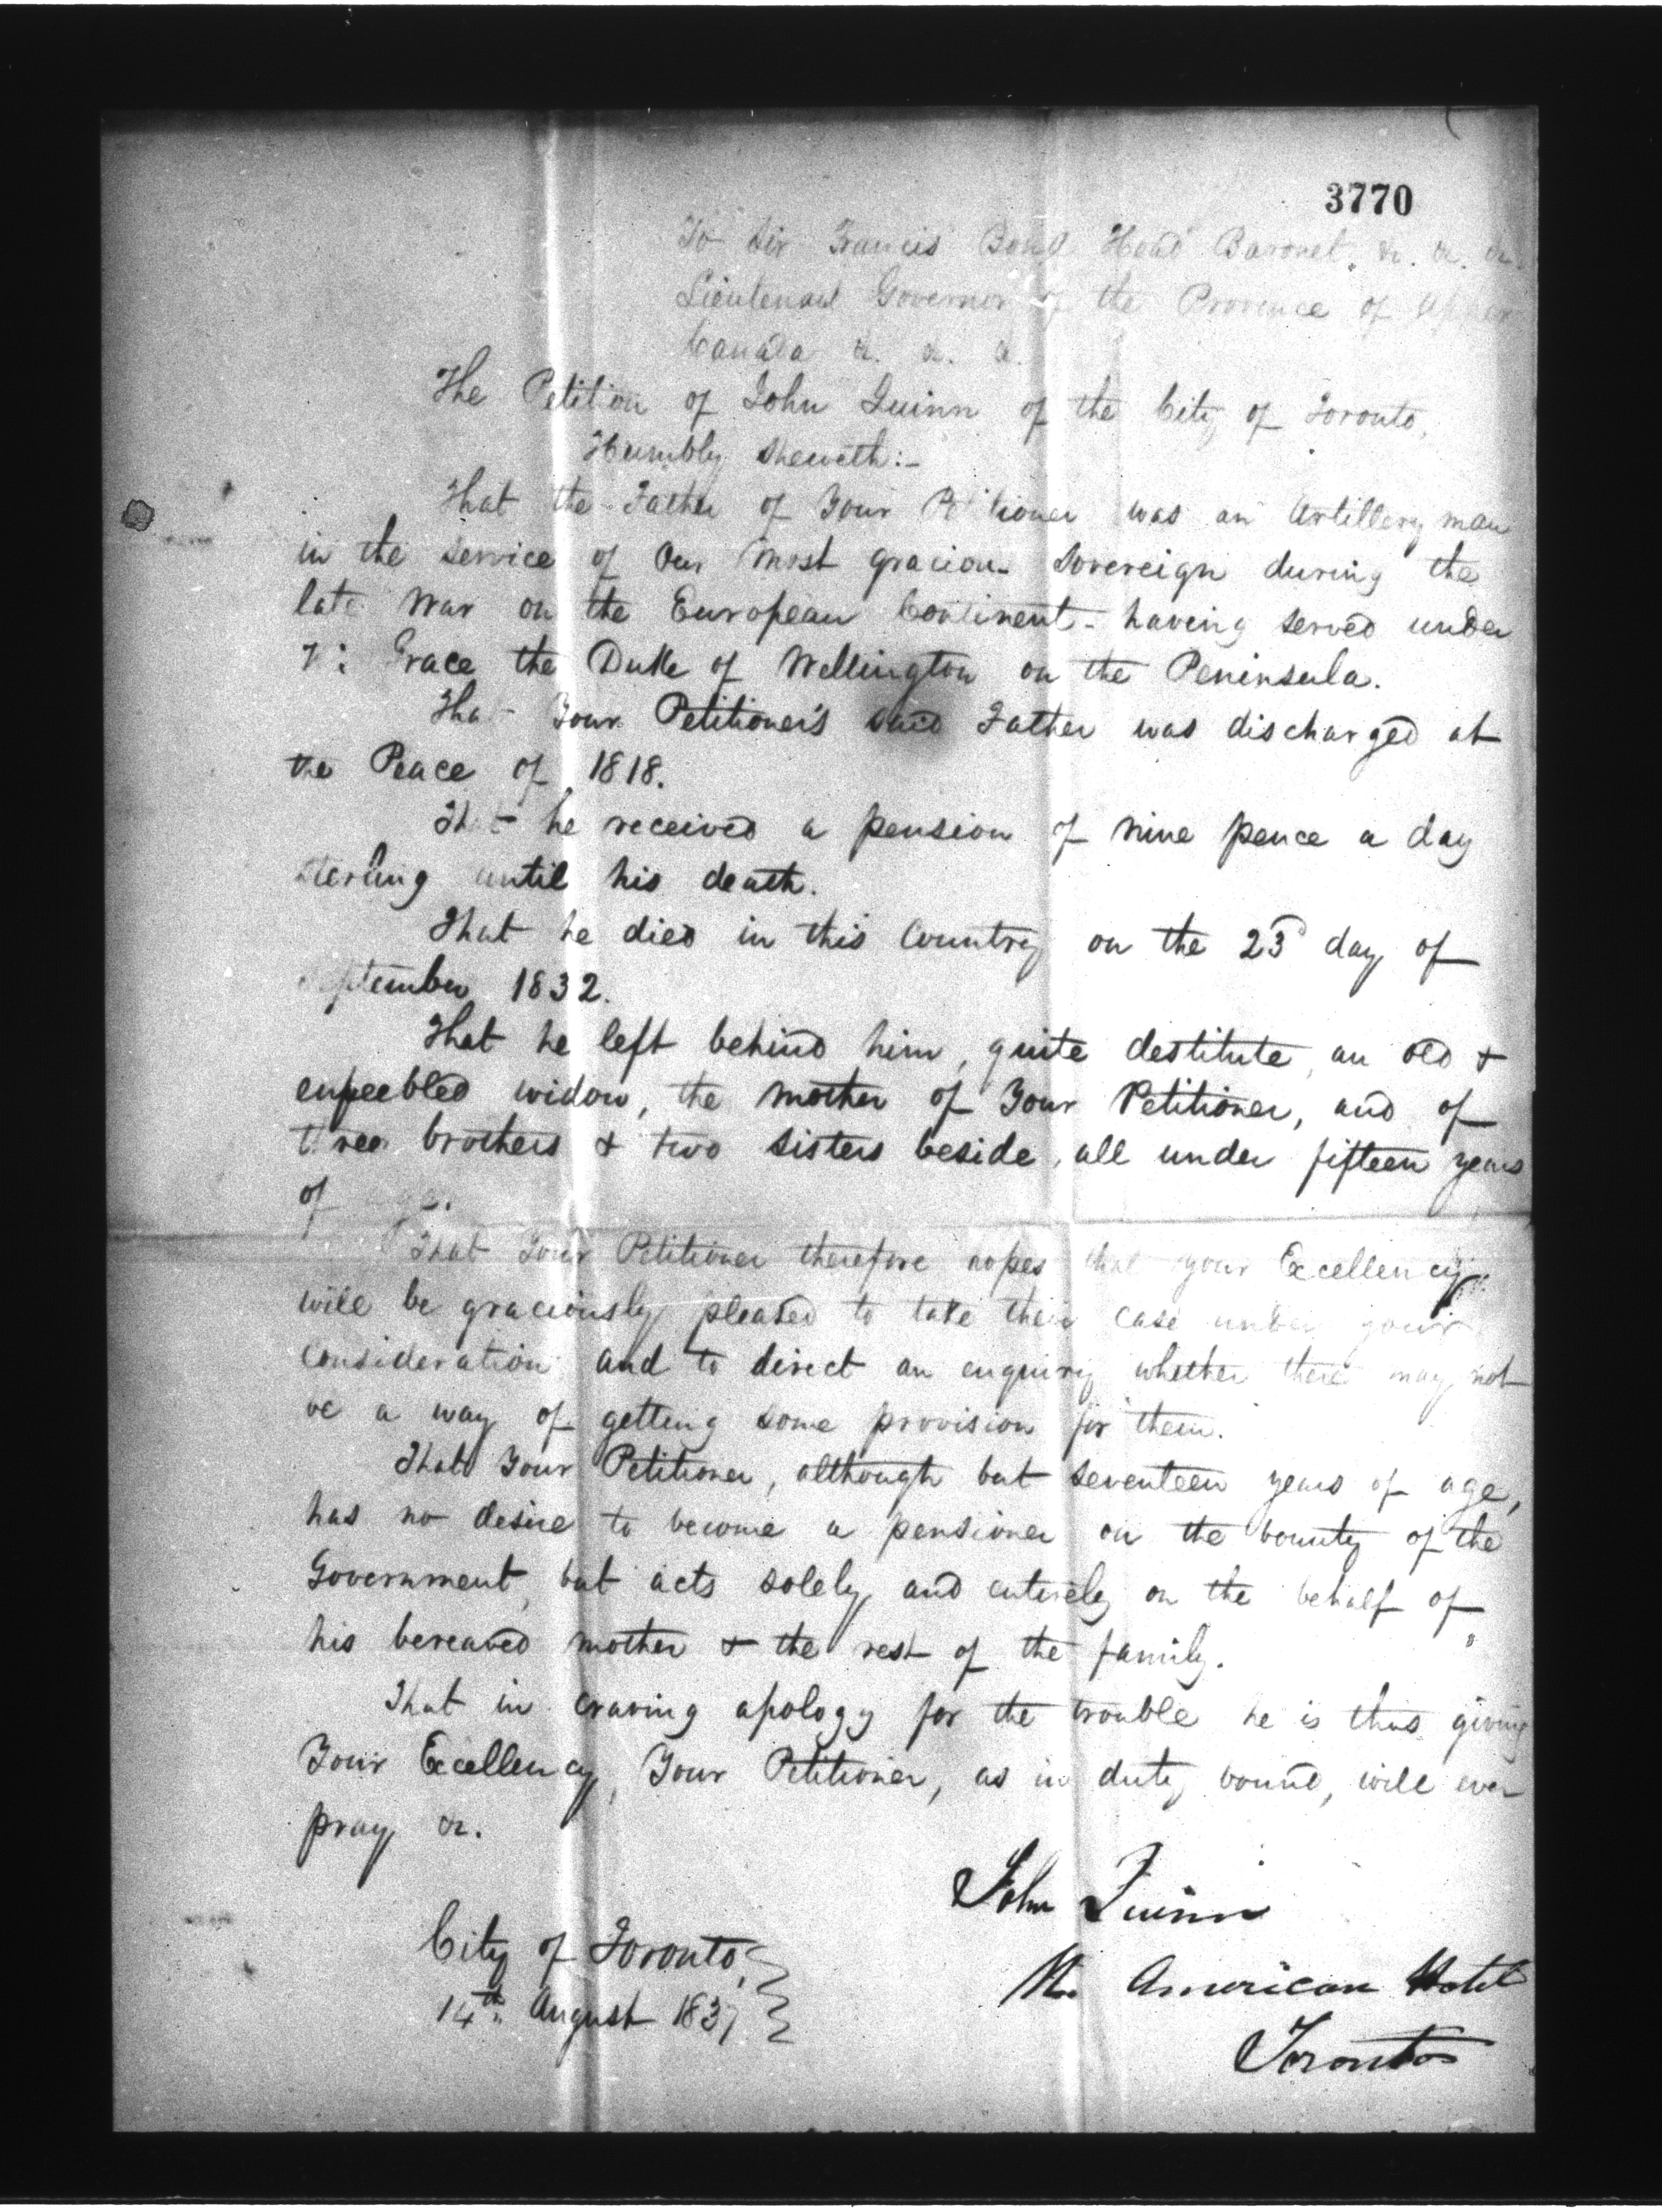 3770
To Sir Francis Bond Head Baronet. &. &. &.
Lieutenant Governor of the Province of Upper
Canada &. &. &.
The Petition of John Quinn of the City of Toronto,
Humbly sheweth:-
That the Father of Your Petitioner was an Artillery man
in the service of Our Most gracious Sovereign during the
late War on the European Continent - having served under
His Grace the Duke of Wellington on the Peninsula.
That Your Petitioner's said Father was discharged at
the Peace of 1818.
That he received a pension of nine pence a day
sterling until his death.
That he died in this Country on the 23d day of
September 1832.
That he left behind him, quite destitute, an old &
enfeebled widow, the mother of Your Petitioner, and of
three brothers & two sisters beside, all under fifteen years
of age.
That Your Petitioner therefore hopes that your Excellency
will be graciously pleased to take their case under your
consideration and to direct an enquiry whether there may not
be a way of getting some provision for them.
That Your Petitioner, although but seventeen years of age,
has no desire to become a pensioner on the bounty of the
Government, but acts solely and entirely on the behalf of
his bereaved mother & the rest of the family.
That in craving apology for the trouble he is thus giving
Your Excellency, Your Petitioner, as in duty bound, will ever
pray &.
John Quinn
City of Toronto,
American Hotel
14th. August 1837
Toronto